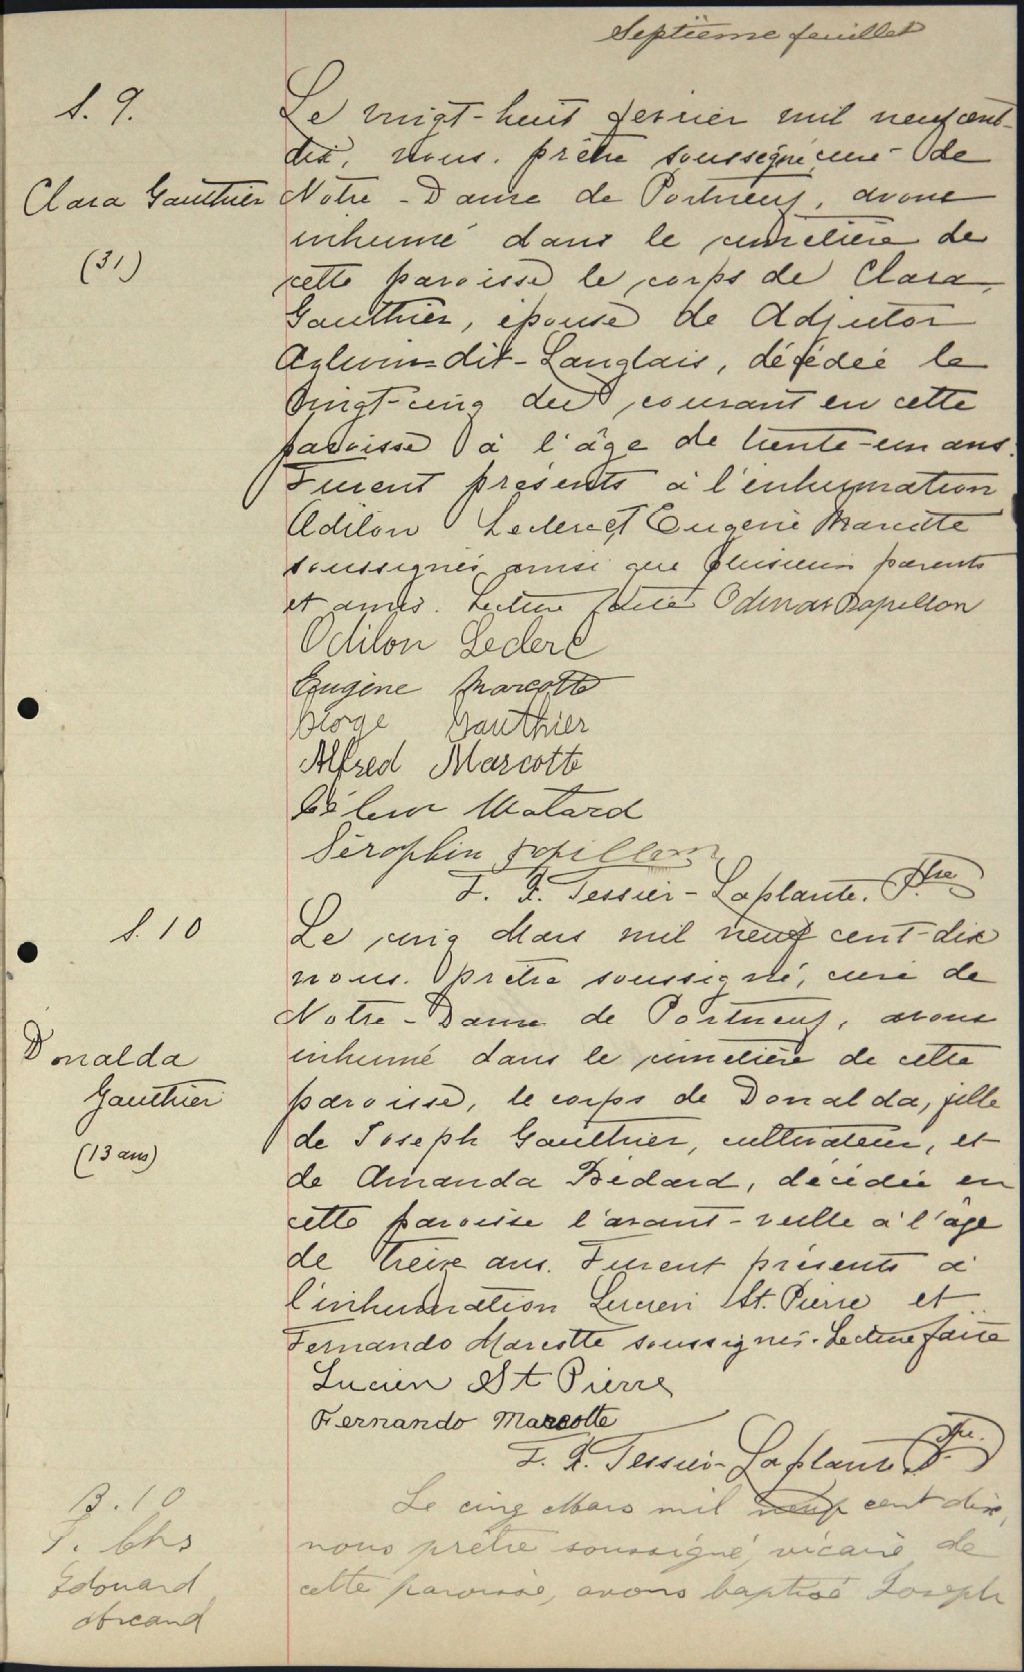 Septième feuillet
S. 9.
Clara Gauthier
(31)
Le vingt-huit fevrier mil neuf cent-
dix, nous. prêtre soussigné, curé de
Notre-Dame de Portneuf, avons
inhumé dans le cimetière de
cette paroisse le corps de Clara
Gauthier, épouse de Adjutor
dit-Langlais, décédée le
vingt-cinq du courant en cette
paroisse à l'âge de trente-un ans.
Furent présents à l'inhumation
Odilon Leclerc et Eugène Marcotte
soussignés ainsi que plusieurs parents
et amis. Lecture faite Papillon
Odilon Leclerc
Eugène Marcotte
George Gauthier
Alfred Marcotte
Matard
Séraphin Papillon
F. X. Tessier-Laplante. Ptre
S. 10
Donalda
Gauthier
(13 ans)
Le cinq Mars mil neuf cent-dix
nous. prêtre soussigné, curé de
Notre-Dame de Portneuf, avons
inhumé dans le cimetière de cette
paroisse, le corps de Donalda, fille
de Joseph Gauthier, cultivateur, et
de Amanda Bédard, décédée en
cette paroisse l'avant-veille à l'âge
de treize ans. Furent présents à
l'inhumation Lucien St. Pierre et
Fernando Marcotte soussignés. Lecture faite
Lucien St Pierre
Fernando Marcotte
F. X. Tessier-Laplante Ptre.
B. 10
J. Chs
Edouard
Le cinq Mars mil neuf cent dix,
nous prêtre soussigné, vicaire de
cette paroisse, avons baptisé Joseph